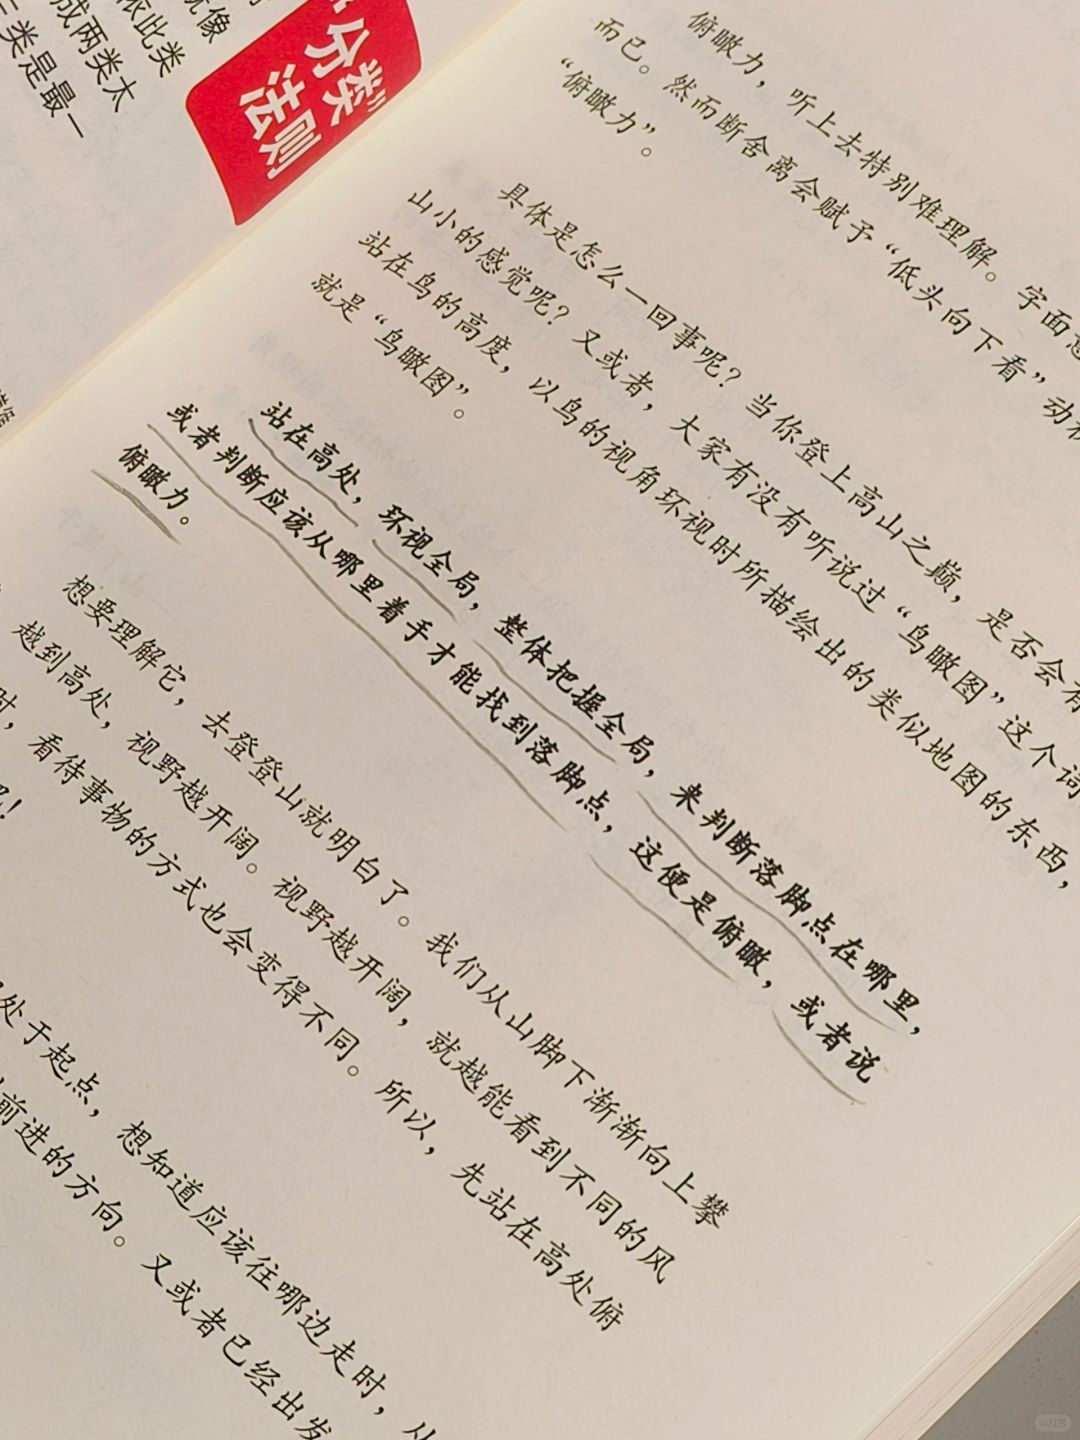 就像
依此类
成两类太
三类是最一
“分类”
法则
俯瞰力，听上去特别难理解。字面意
而已。然而断舍离会赋予“低头向下看”动
“俯瞰力”。
具体是怎么一回事呢？当你登上高山之巅，是否会有
山小的感觉呢？又或者，大家有没有听说过“鸟瞰图”这个词
站在鸟的高度，以鸟的视角环视时所描绘出的类似地图的东西，
就是“鸟瞰图”。
站在高处，环视全局，整体把握全局，来判断落脚点在哪里，
或者判断应该从哪里着手才能找到落脚点，这便是俯瞰，或者说
俯瞰力。
想要理解它，去登登山就明白了。我们从山脚下渐渐向上攀
越到高处，视野越开阔。视野越开阔，就越能看到不同的风
时，看待事物的方式也会变得不同。所以，先站在高处俯
！
处于起点，想知道应该往哪边走时，从
前进的方向。又或者已经出发